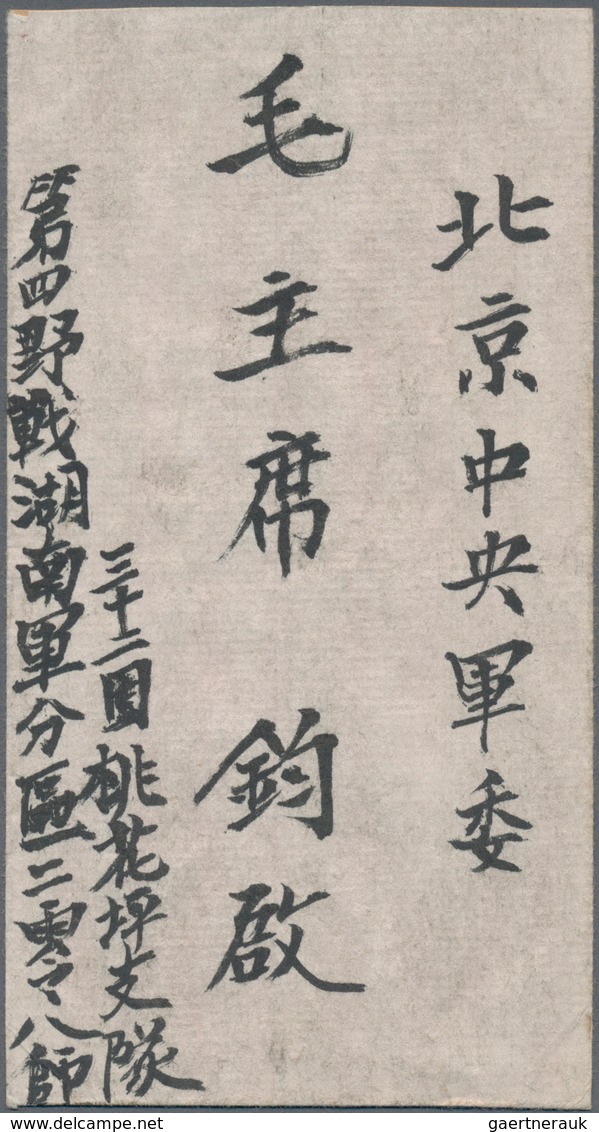 北京中央軍委
毛主席 鈞啟
第四野戰湖南軍分區一二零八師
三十二團桃花坪支隊
gaertnerauk